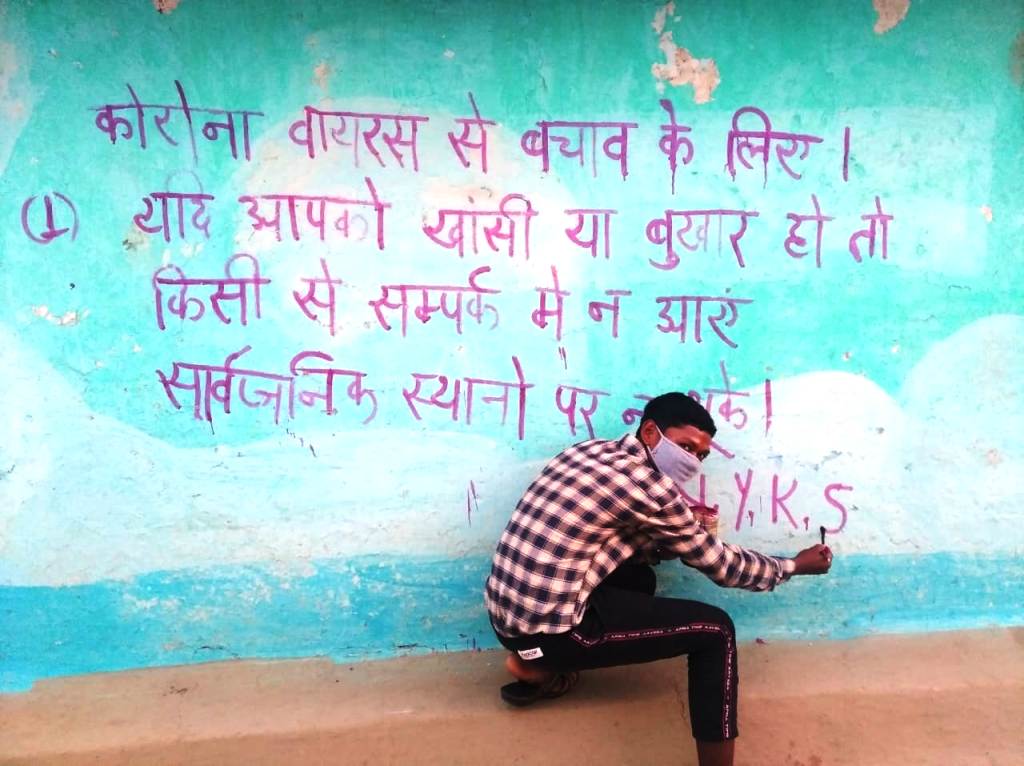 कोरोना वायरस से बचाव के लिए।
(1) यदि आपको खांसी या बुखार हो तो
किसी से सम्पर्क मे न आएं
सार्वजनिक स्थानो पर न
N.Y.K.S